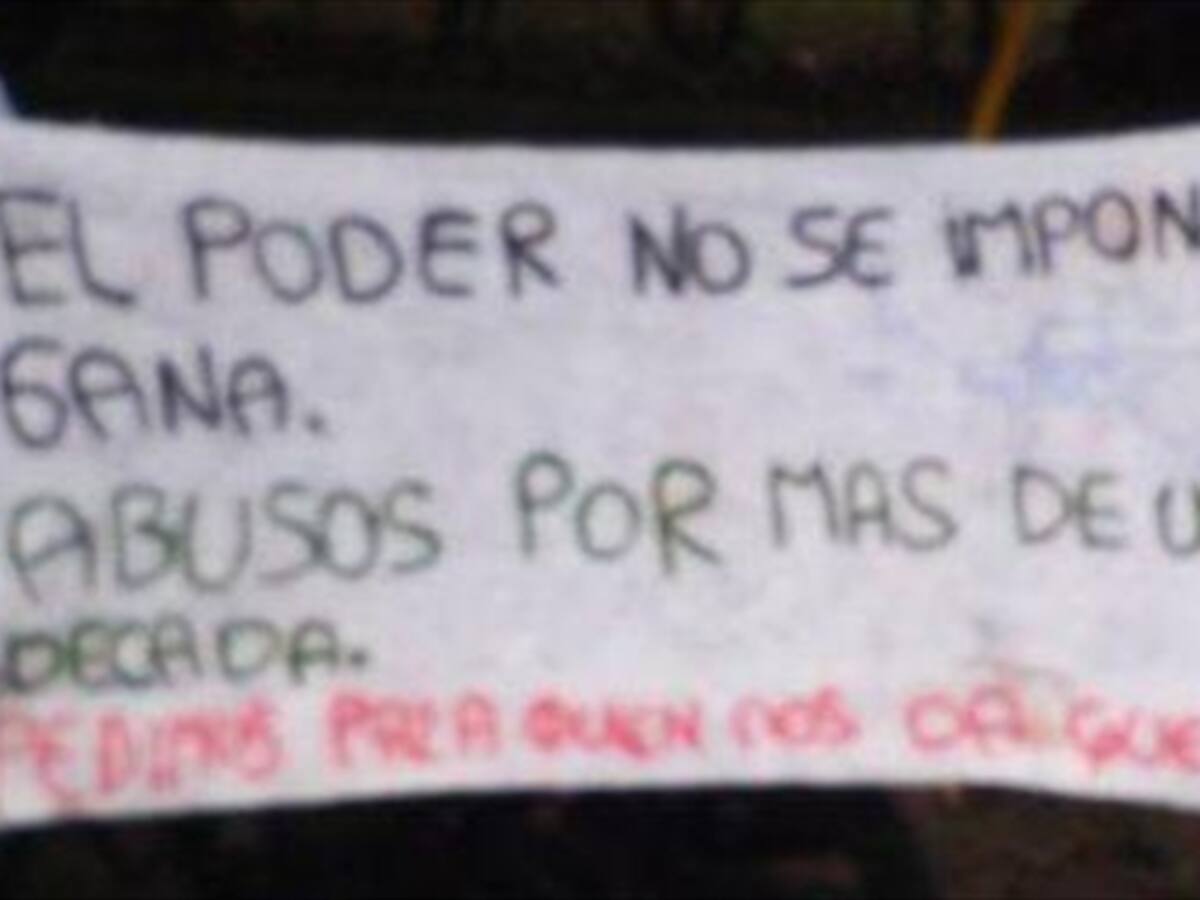 EL PODER NO SE IMPON
GANA.
ABUSOS POR MAS DE U
DECADA.
PEDIMOS PAZ A QUIEN NOS DA GUE